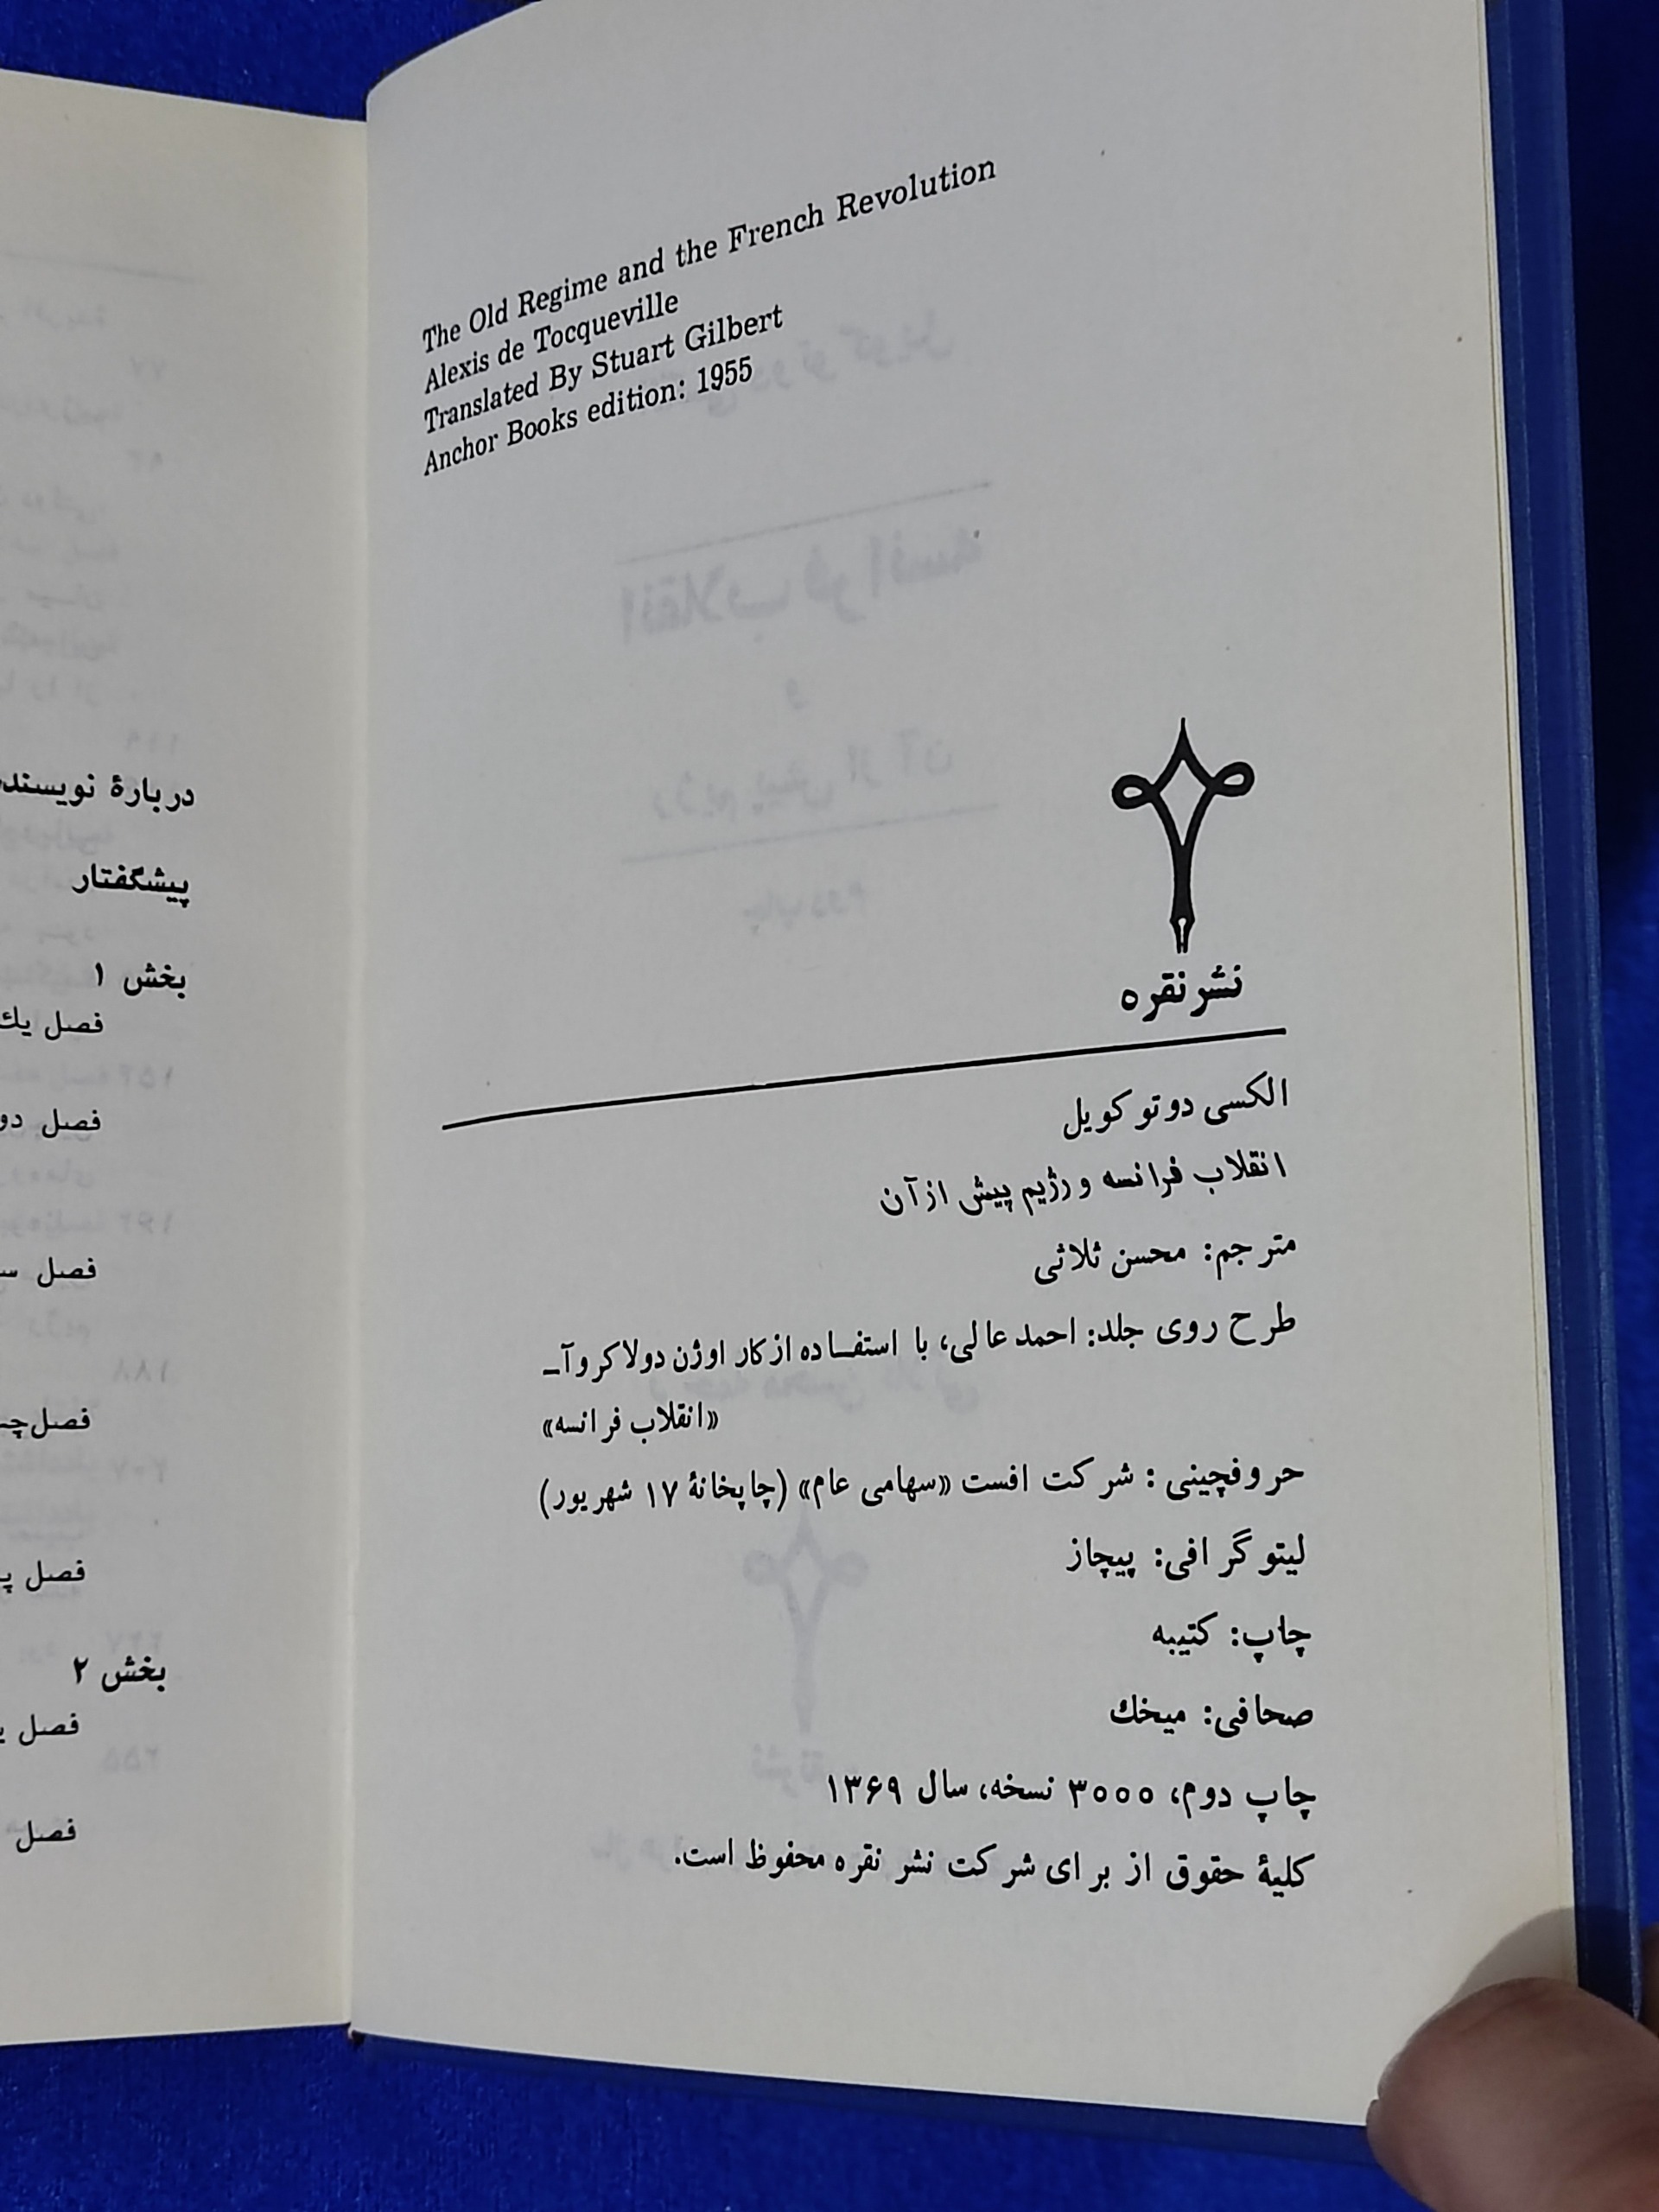 The Old Regime and the French Revolution
Alexis de Tocqueville
Translated By Stuart Gilbert
Anchor Books edition: 1955
نشر نقره
الکسی دو توکویل
انقلاب فرانسه و رژیم پیش از آن
مترجم: محسن ثلاثی
طرح روی جلد: احمد عالی، با استفاده از کار اوژن دولاکروآ ـ
«انقلاب فرانسه»
حروفچینی: شرکت افست «سهامی عام» (چاپخانهٔ ۱۷ شهریور)
لیتوگرافی: پیچاز
چاپ: کتیبه
صحافی: میخك
چاپ دوم، ۳۰۰۰ نسخه، سال ۱۳۶۹
کلیهٔ حقوق از برای شرکت نشر نقره محفوظ است.
دربارهٔ
پیشگفتار
بخش ۱
فصل یك
فصل
فصل
فصل
فصل
بخش ۲
فصل
فصل